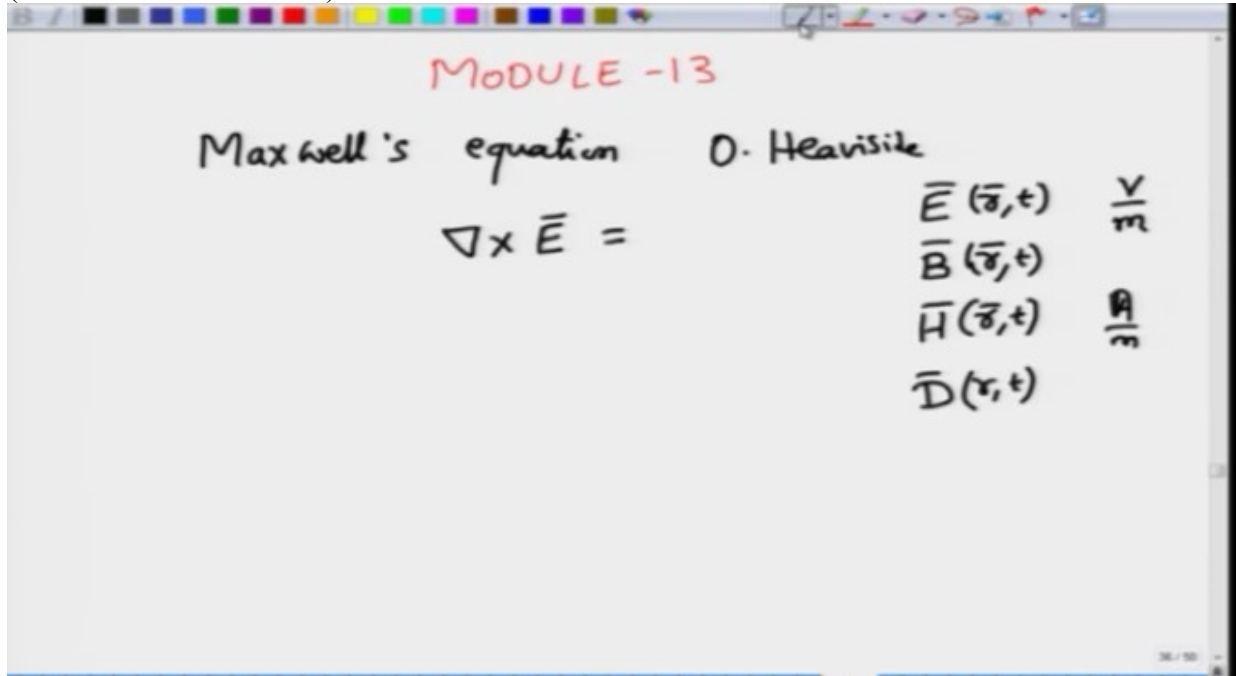 MODULE -13
Maxwell's equation O. Heaviside
∇× E̅ =
E̅ (r̅,t) V/m
B̅ (r̅,t)
H̅ (r̅,t) A/m
D̅ (r,t)
36 / 50